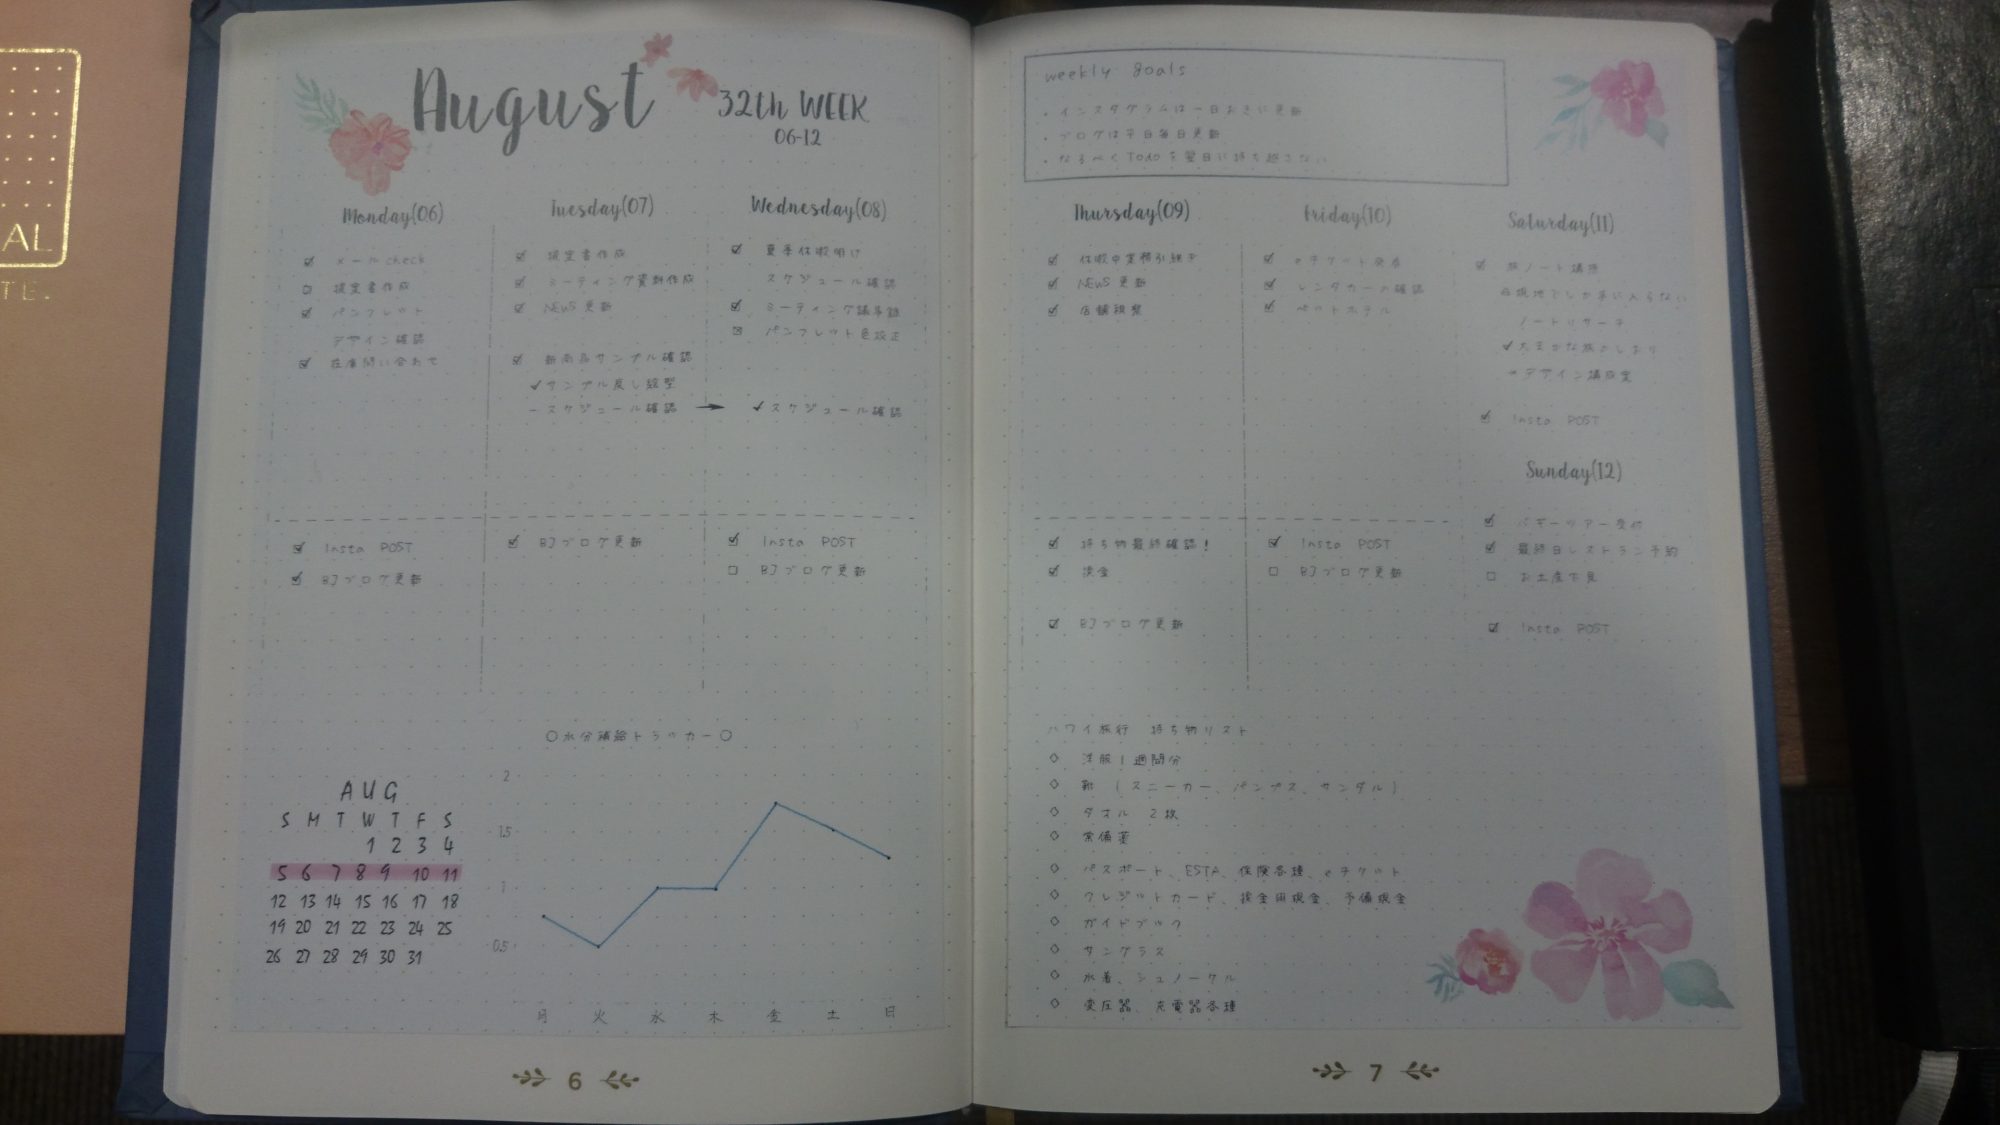 August
32th WEEK
06-12
Monday(06)
メールcheck
提案書作成
パンフレット
デザイン確認
在庫問い合わせ
Insta POST
BJブログ更新
Tuesday(07)
提案書作成
ミーティング資料作成
NEWS 更新
新商品サンプル確認
サンプル戻し
スケジュール確認
BJブログ更新
Wednesday(08)
夏季休暇明け
スケジュール確認
ミーティング議事録
パンフレット色校正
スケジュール確認
Insta POST
BJブログ更新
AUG
S M T W T F S
1 2 3 4
5 6 7 8 9 10 11
12 13 14 15 16 17 18
19 20 21 22 23 24 25
26 27 28 29 30 31
○水分補給トラッカー○
2
1.5
1
0.5
月 火 水 木 金 土 日
6
weekly goals
・インスタグラムは一日おきに更新
・ブログは平日毎日更新
・なるべくTodoを翌日に持ち越さない
Thursday(09)
休暇中業務引継ぎ
NEWS 更新
店舗視察
持ち物最終確認!
換金
BJブログ更新
Friday(10)
eチケット発券
レンタカーの確認
ペットホテル
Insta POST
BJブログ更新
Saturday(11)
旅ノート
ノートリサーチ
大まかな旅のしおり
デザイン構成案
Insta POST
Sunday(12)
バギーツアー受付
最終日レストラン予約
お土産下見
Insta POST
ハワイ旅行 持ち物リスト
◇ 洋服1週間分
◇ 靴 (スニーカー、パンプス、サンダル)
◇ タオル 2枚
◇ 常備薬
◇ パスポート、ESTA、保険各種、eチケット
◇ クレジットカード、換金用現金、予備現金
◇ ガイドブック
◇ サングラス
◇ 水着、シュノーケル
◇ 変圧器、充電器各種
7
AL
TE.